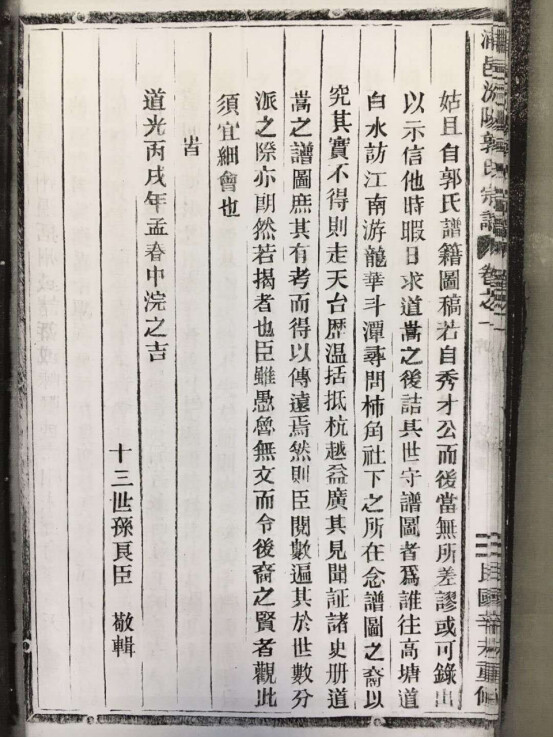 浦邑
郭氏宗譜
卷之一
姑且自郭氏譜籍圖稿若自秀才公而後當無所差謬或可錄出
以示信他時暇日求道嵩之後詰其世守譜圖者爲誰往高塘道
白水訪江南游龍華斗潭尋問柿角社下之所在念譜圖之裔以
究其實不得則走天台歷温括抵杭越益廣其見聞証諸史册道
嵩之譜圖庶其有考而得以傳遠焉然則臣閱數遍其於世數分
派之際亦朗然若揭者也臣雖愚魯無文而令後裔之賢者觀此
須宜細會也
旹
道光丙戌年孟春中浣之吉
十三世孫良臣 敬輯